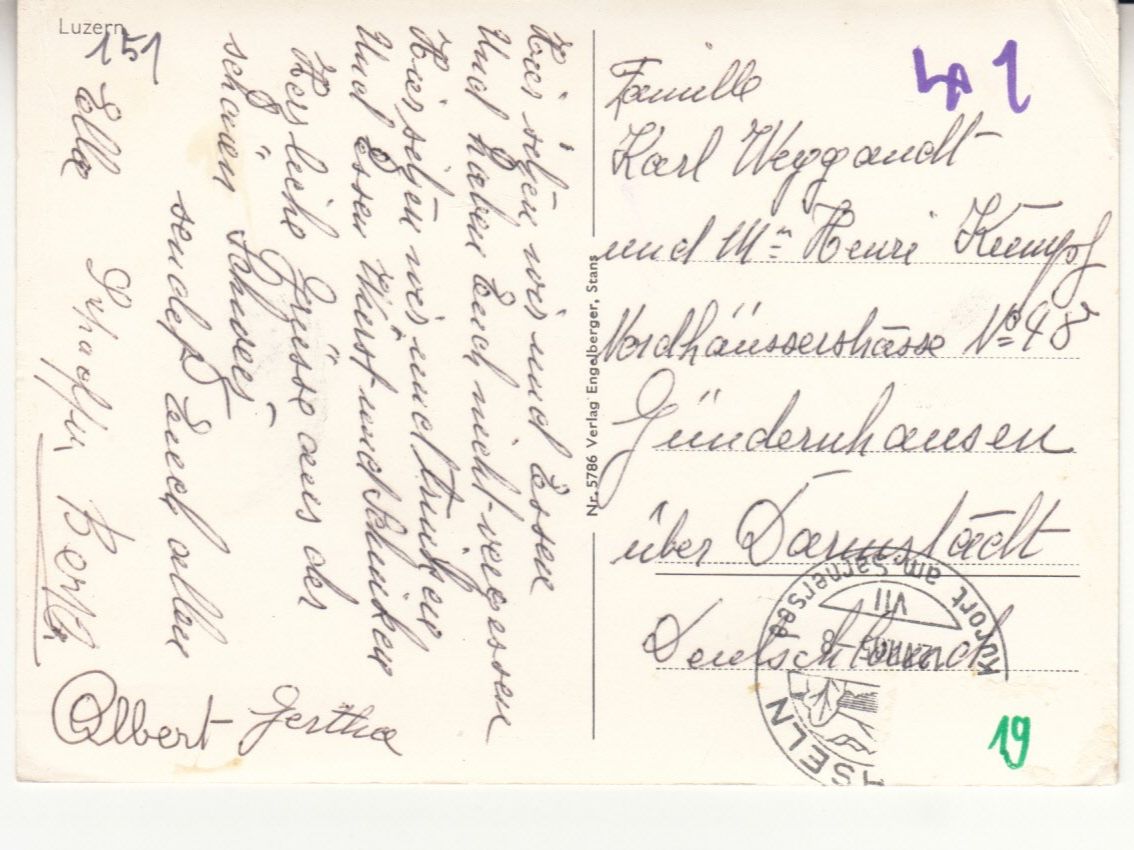 Luzern
151
Hier sitzen wir und Essen
Und haben Euch nicht vergessen
Hier sitzen wir und trinken
Und Essen Wurst und Schinken
Herzliche Grüsse aus der
schönen Schweiz
sendet Euch allen
Ella Bertha
Albert Gertha
Nr. 5786 Verlag Engelberger, Stans
LA 1
Familie
Karl Weygandt
und Mr Henri Kumpf
Nordhäusserstrasse No 48
Gündernhausen
über Darmstadt
Deutschland
Kurort am Sarnersee
VII
SELN
19